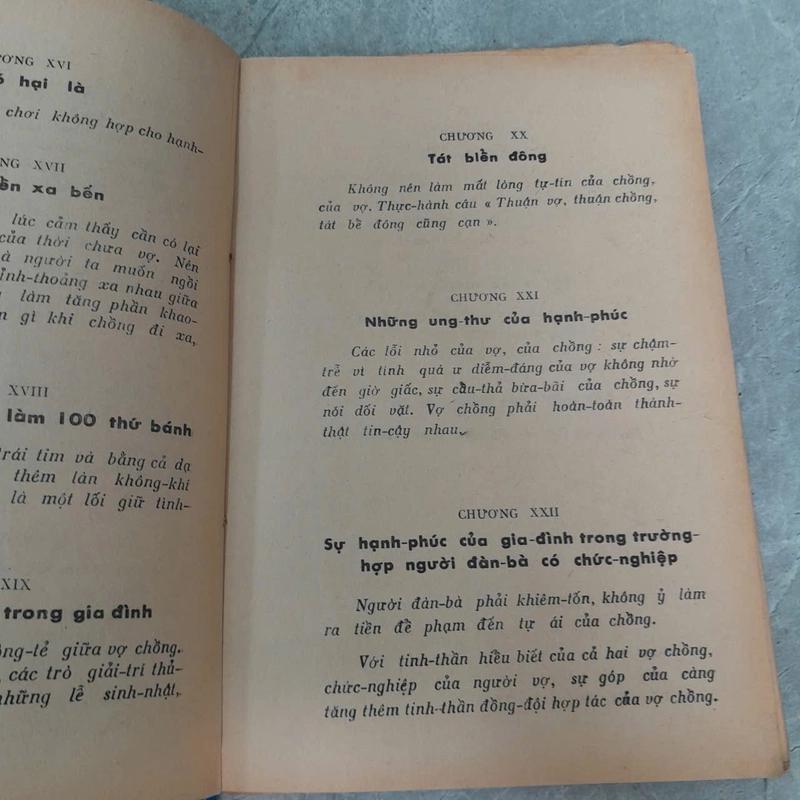 ƯƠNG XVI
ó hại là
chơi không hợp cho hạnh-
NG XVII
ền xa bến
lúc cảm thấy cần có lại
của thời chưa vợ. Nên
à người ta muốn ngồi
ỉnh-thoảng xa nhau giữa
làm tăng phần khao-
n gì khi chồng đi xa,
XVIII
làm 100 thứ bánh
trái tim và bằng cả dạ
thêm làn không-khí
là một lối giữ tình-
XIX
trong gia đình
ông-tẻ giữa vợ chồng.
các trò giải-trí thủ-
những lễ sinh-nhật,
CHƯƠNG XX
Tát biền đông
Không nên làm mất lòng tự-tin của chồng,
của vợ. Thực-hành câu « Thuận vợ, thuận chồng,
tát bề đông cũng cạn ».
CHƯƠNG XXI
Những ung-thư của hạnh-phúc
Các lỗi nhỏ của vợ, của chồng : sự chậm-
trễ vì tính quá ư diễm-đáng của vợ không nhờ
đến giờ giấc, sự cầu-thả bừa-bãi của chồng, sự
nói dối vặt. Vợ chồng phải hoàn-toàn thành-
thật tin-cậy nhau.
CHƯƠNG XXII
Sự hạnh-phúc của gia-đình trong trường-
hợp người đàn-bà có chức-nghiệp
Người đàn-bà phải khiêm-tốn, không ỷ làm
ra tiền để phạm đến tự ái của chồng.
Với tinh-thần hiểu biết của cả hai vợ chồng,
chức-nghiệp của người vợ, sự góp của càng
tăng thêm tinh-thần đồng-đội hợp tác của vợ chồng.